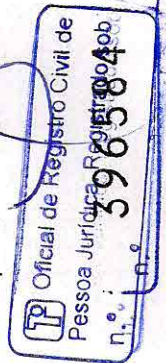 1º Oficial de Registro Civil de
Pessoa Jurídica Registrado sob
n.º 396584
n.º